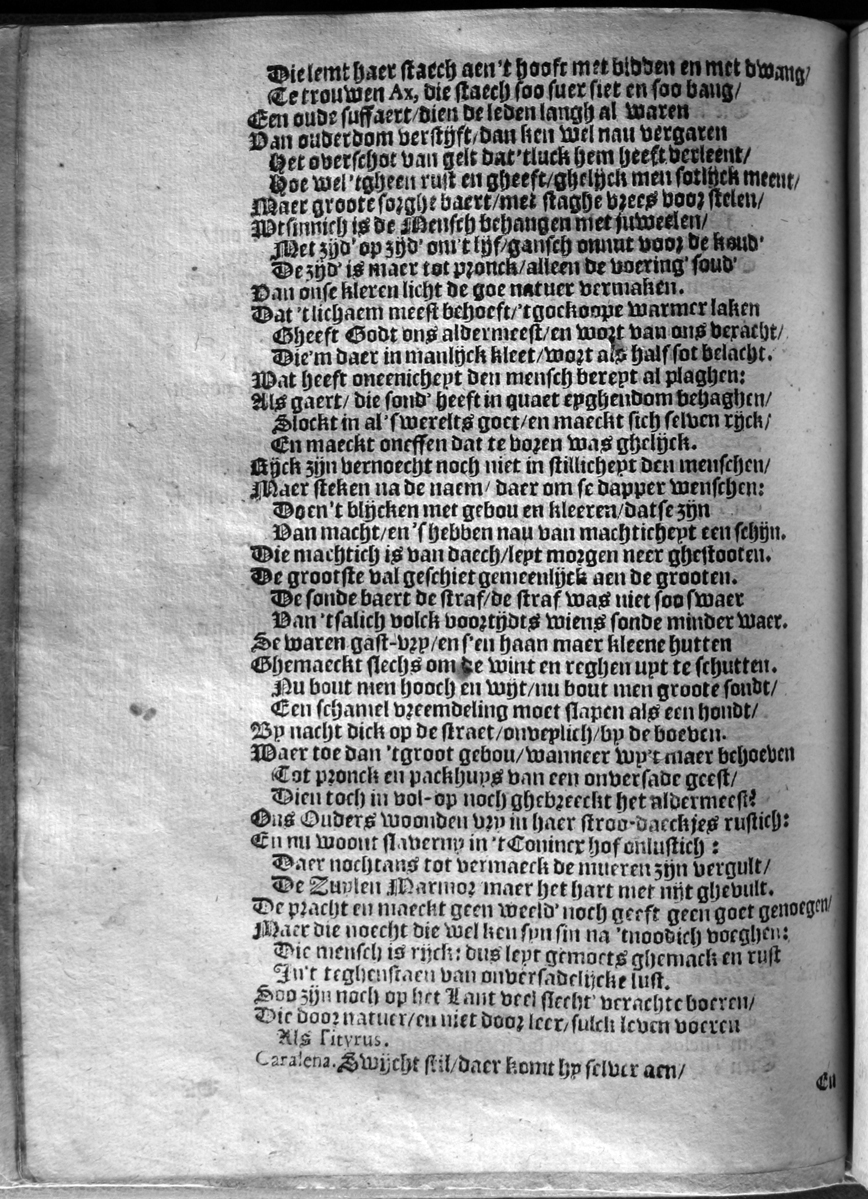 Die lemt haer staech aen't hooft met bidden en met dwang/
Te trouwen Ax, die staech soo suer siet en soo bang/
Een oude suffaert/dien de leden langh al waren
Van ouderdom verstijft/dan ken wel nau vergaren
Het overschot van gelt dat'tluck hem heeft verleent/
Hoe wel 'tgheen rust en gheeft/ghelijck men sotlijck meent/
Maer groote sorghe baert/met staghe vrees voor stelen/
Wtsinnich is de Mensch behangen met juweelen/
Met zijd' op zijd' om't lijf/gansch onnut voor de koud'
De zijd' is maer tot pronck/alleen de voering' soud'
Van onse kleren licht de goe natuer vermaken.
Dat 'tlichaem meest behoeft/'tgoekoope warmer laken
Gheeft Godt ons aldermeest/en wort van ons veracht/
Die'm daer in manlijck kleet/wort als half sot belacht.
Wat heeft oneenicheyt den mensch bereyt al plaghen:
Als gaert/ die sond' heeft in quaet eyghendom behaghen/
Slockt in al 'swerelts goet/en maeckt sich selven rijck/
En maeckt oneffen dat te voren was ghelijck.
Rijck zijn vernoecht noch niet in stillicheyt den menschen/
Maer steken na de naem/ daer om se dapper wenschen:
Doen't blijcken met gebou en kleeren/datse zijn
Van macht/en 's hebben nau van machticheyt een schijn.
Die machtich is van daech/leyt morgen neer ghestooten.
De grootste val geschiet gemeenlijck aen de grooten.
De sonde baert de straf/de straf was niet soo swaer
Van 'tsalich volck voortijdts wiens sonde minder waer.
Se waren gast-vry/en s'en haan maer kleene hutten
Ghemaeckt slechs om de wint en reghen uyt te schutten.
Nu bout men hooch en wijt/nu bout men groote sondt/
Een schamel vreemdeling moet slapen als een hondt/
By nacht dick op de straet/onveylich/by de boeven.
Waer toe dan 'tgroot gebou/wanneer wy't maer behoeven
Tot pronck en packhuys van een onversade geest/
Dien toch in vol-op noch ghebreeckt het aldermeest?
Ons Ouders woonden vry in haer stroo-daeckjes rustich:
En nu woont slaverny in 't Coninck hof onlustich:
Daer nochtans tot vermaeck de mueren zijn vergult/
De Zuylen Marmor maer het hart met nijt ghevult.
De pracht en maeckt geen weeld' noch geeft geen goet genoegen/
Maer die noecht die wel ken syn sin na 'tnoodich voeghen:
Die mensch is rijck: dus leyt gemoets ghemack en rust
In't teghenstaen van onversadelijcke lust.
Soo zijn noch op het Lant veel slecht' verachte boeren/
Die door natuer/en niet door leer/sulck leven voeren
Als Tityrus.
Caralena. Swijcht stil/daer komt hy selver aen/
En